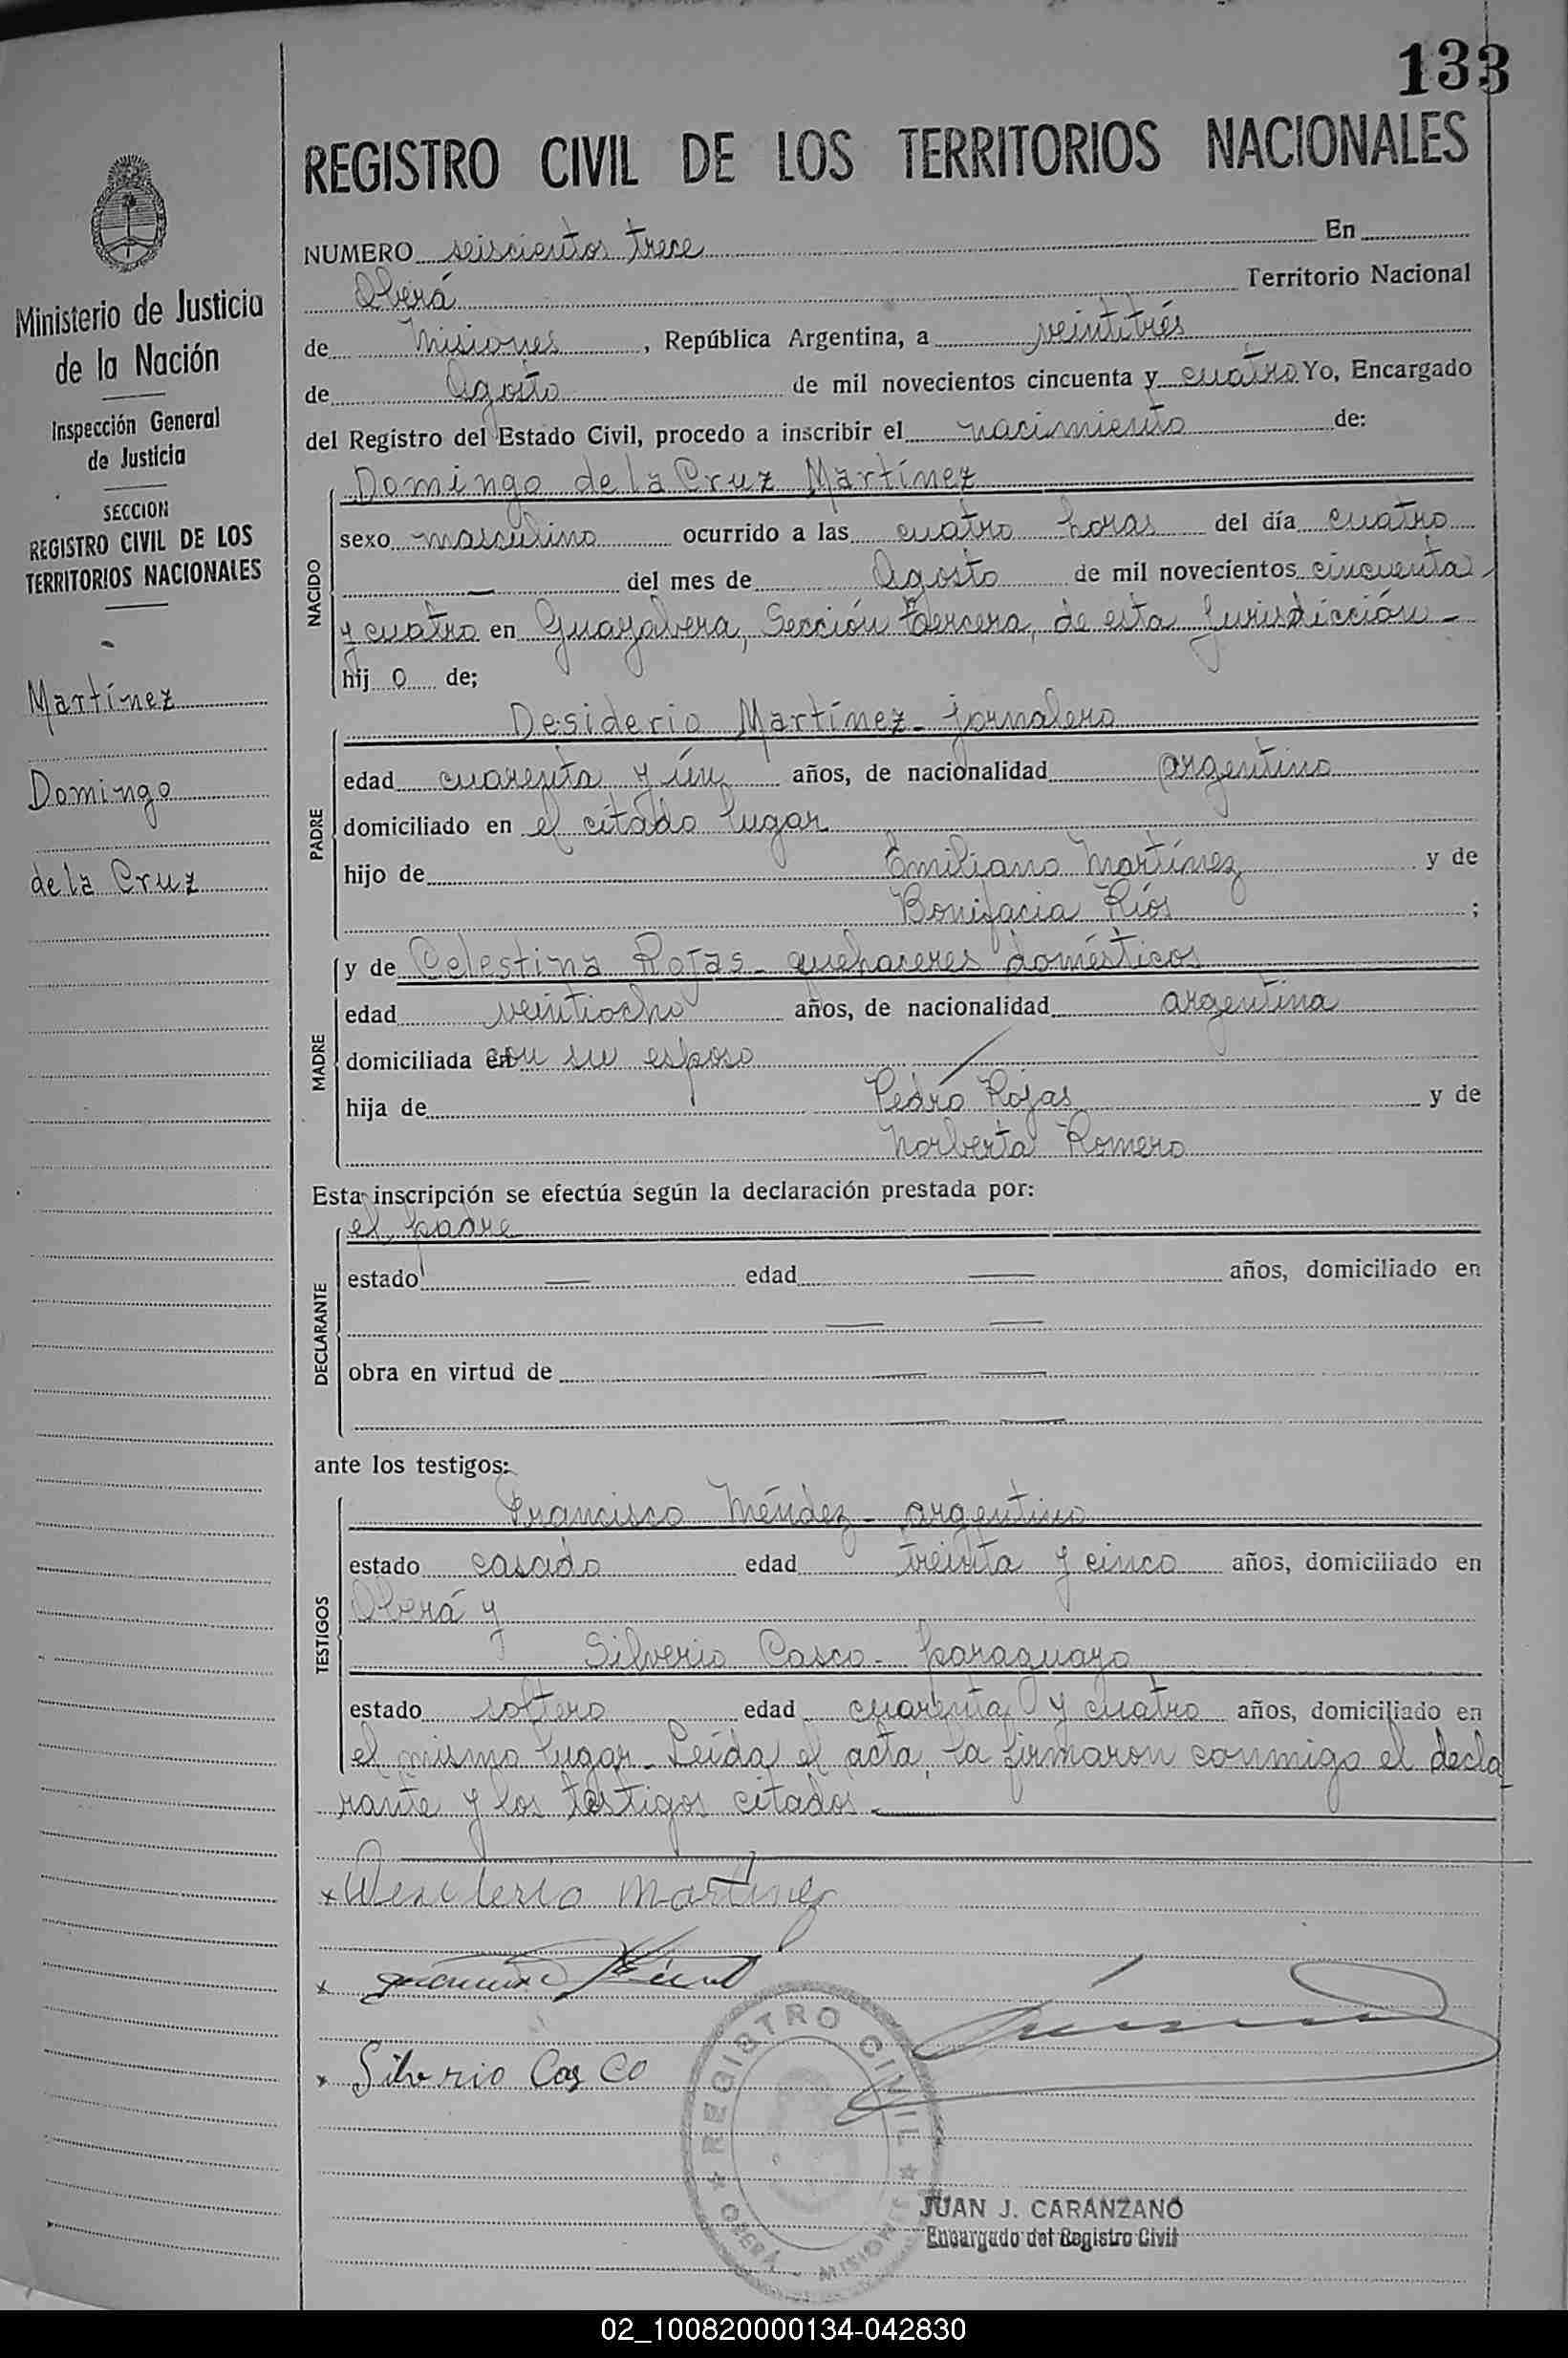 133
REGISTRO CIVIL DE LOS TERRITORIOS NACIONALES
Ministerio de Justicia
de la Nación
Inspección General
de Justicia
SECCION
REGISTRO CIVIL DE LOS
TERRITORIOS NACIONALES
Martínez
Domingo
de la Cruz
NUMERO seiscientos trece En
Oberá Territorio Nacional
de Misiones, República Argentina, a veintitrés
de Agosto de mil novecientos cincuenta y cuatro Yo, Encargado
del Registro del Estado Civil, procedo a inscribir el nacimiento de:
NACIDO
Domingo de la Cruz Martínez
sexo masculino ocurrido a las cuatro horas del día cuatro
— del mes de Agosto de mil novecientos cincuenta
y cuatro en Guayabera, Sección tercera, de esta Jurisdicción -
hij o de;
PADRE
Desiderio Martínez - jornalero
edad cuarenta y ún años, de nacionalidad argentino
domiciliado en el citado lugar
hijo de Emiliano Martínez y de
Bonifacia Ríos ;
MADRE
y de Celestina Rojas - quehaceres domésticos
edad veintiocho años, de nacionalidad argentina
domiciliada en con su esposo
hija de Pedro Rojas y de
Norberta Romero
Esta inscripción se efectúa según la declaración prestada por:
DECLARANTE
el padre
estado — edad — años, domiciliado en
— —
obra en virtud de — —
— —
ante los testigos:
TESTIGOS
Francisco Méndez - argentino
estado casado edad treinta y cinco años, domiciliado en
Oberá y
Silverio Casco - paraguayo
estado soltero edad cuarenta y cuatro años, domiciliado en
el mismo lugar - Leída el acta, la firmaron conmigo el decla
rante y los testigos citados -
x Desiderio Martinez
x
x Silverio Casco
REGISTRO CIVIL
OBERÁ - MISIONES
JUAN J. CARANZANO
Encargado del Registro Civil
02_100820000134-042830